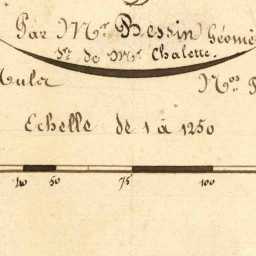 Par Mr Bessin Géomè
Sr de Mr Chalette.
Nos P
Echelle de 1 à 1250
50 75 100